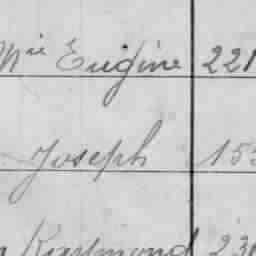 Mie Eugine 221
Joseph 153
Raymond 236